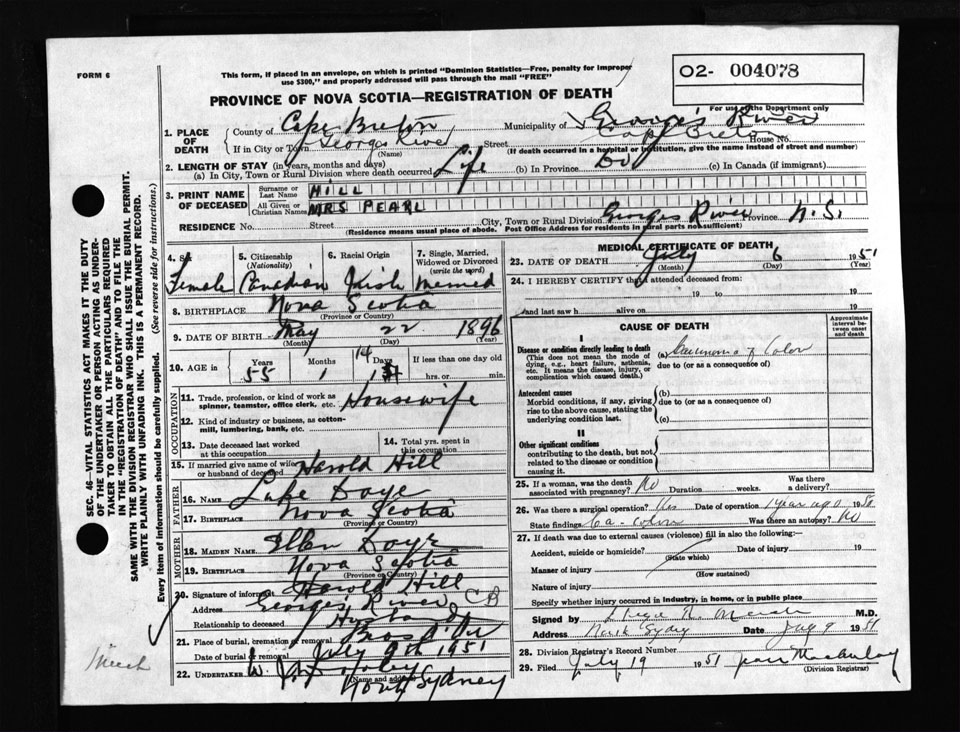 FORM 6
This form, if placed in an envelope, on which is printed "Dominion Statistics—Free, penalty for improper
use $300," and properly addressed will pass through the mail "FREE"
02- 004078
For use of the Department only
PROVINCE OF NOVA SCOTIA—REGISTRATION OF DEATH
1. PLACE OF DEATH
County of Cape Breton
Municipality of Georges River
Cape Breton
If in City or Town Georges River (Name) Street House No.
(If death occurred in a hospital or institution, give the name instead of street and number)
2. LENGTH OF STAY (in years, months and days)
(a) In City, Town or Rural Division where death occurred Life (b) In Province Do (c) In Canada (if immigrant)
3. PRINT NAME OF DECEASED
Surname or Last Name HILL
All Given or Christian Names MRS PEARL
RESIDENCE No. Street City, Town or Rural Division Georges River Province N.S.
(Residence means usual place of abode. Post Office Address for residents in rural parts not sufficient)
4. Female
5. Citizenship (Nationality) Canadian
6. Racial Origin Irish
7. Single, Married, Widowed or Divorced (write the word) Married
8. BIRTHPLACE Nova Scotia
(Province or Country)
9. DATE OF BIRTH May 22 1896
(Month) (Day) (Year)
10. AGE in Years 55 Months 1 Days 14 If less than one day old hrs. or min.
OCCUPATION
11. Trade, profession, or kind of work as spinner, teamster, office clerk, etc. Housewife
12. Kind of industry or business, as cotton-mill, lumbering, bank, etc.
13. Date deceased last worked at this occupation
14. Total yrs. spent in this occupation
15. If married give name of wife or husband of deceased Harold Hill
FATHER
16. NAME Luke Doye
17. BIRTHPLACE Nova Scotia
(Province or Country)
MOTHER
18. MAIDEN NAME Ellen Doye
19. BIRTHPLACE Nova Scotia
(Province or Country)
20. Signature of informant Harold Hill
Address Georges River CB
Relationship to deceased Husband
21. Place of burial, cremation or removal Bras D'Or
Date of burial or removal July 9th 1951
22. UNDERTAKER
(Name and address)
North Sydney
MEDICAL CERTIFICATE OF DEATH
23. DATE OF DEATH July 6 1951
(Month) (Day) (Year)
24. I HEREBY CERTIFY that I attended deceased from:
19 to 19
and last saw h alive on 19
CAUSE OF DEATH
Approximate interval between onset and death
I
Disease or condition directly leading to death
(This does not mean the mode of dying, e.g., heart failure, asthenia, etc. It means the disease, injury, or complication which caused death.)
(a) of Colon
due to (or as a consequence of)
Antecedent causes
Morbid conditions, if any, giving rise to the above cause, stating the underlying condition last.
(b)
due to (or as a consequence of)
(c)
II
Other significant conditions
contributing to the death, but not related to the disease or condition causing it.
25. If a woman, was the death associated with pregnancy? No Duration weeks. Was there a delivery?
26. Was there a surgical operation? Yes Date of operation 1 year ago 1950
State findings Ca - colon Was there an autopsy? No
27. If death was due to external causes (violence) fill in also the following:
Accident, suicide or homicide? Date of injury 19
(State which)
Manner of injury
(How sustained)
Nature of injury
Specify whether injury occurred in industry, in home, or in public place
Signed by M.D.
Address North Sydney Date July 9 1951
28. Division Registrar's Record Number
29. Filed July 19 1951
(Division Registrar)
SEC. 46—VITAL STATISTICS ACT MAKES IT THE DUTY
OF THE UNDERTAKER OR PERSON ACTING AS UNDER-
TAKER TO OBTAIN ALL THE PARTICULARS REQUIRED
IN THE "REGISTRATION OF DEATH" AND TO FILE THE
SAME WITH THE DIVISION REGISTRAR WHO SHALL ISSUE THE BURIAL PERMIT.
WRITE PLAINLY WITH UNFADING INK. THIS IS A PERMANENT RECORD.
Every item of information should be carefully supplied. (See reverse side for instructions.)